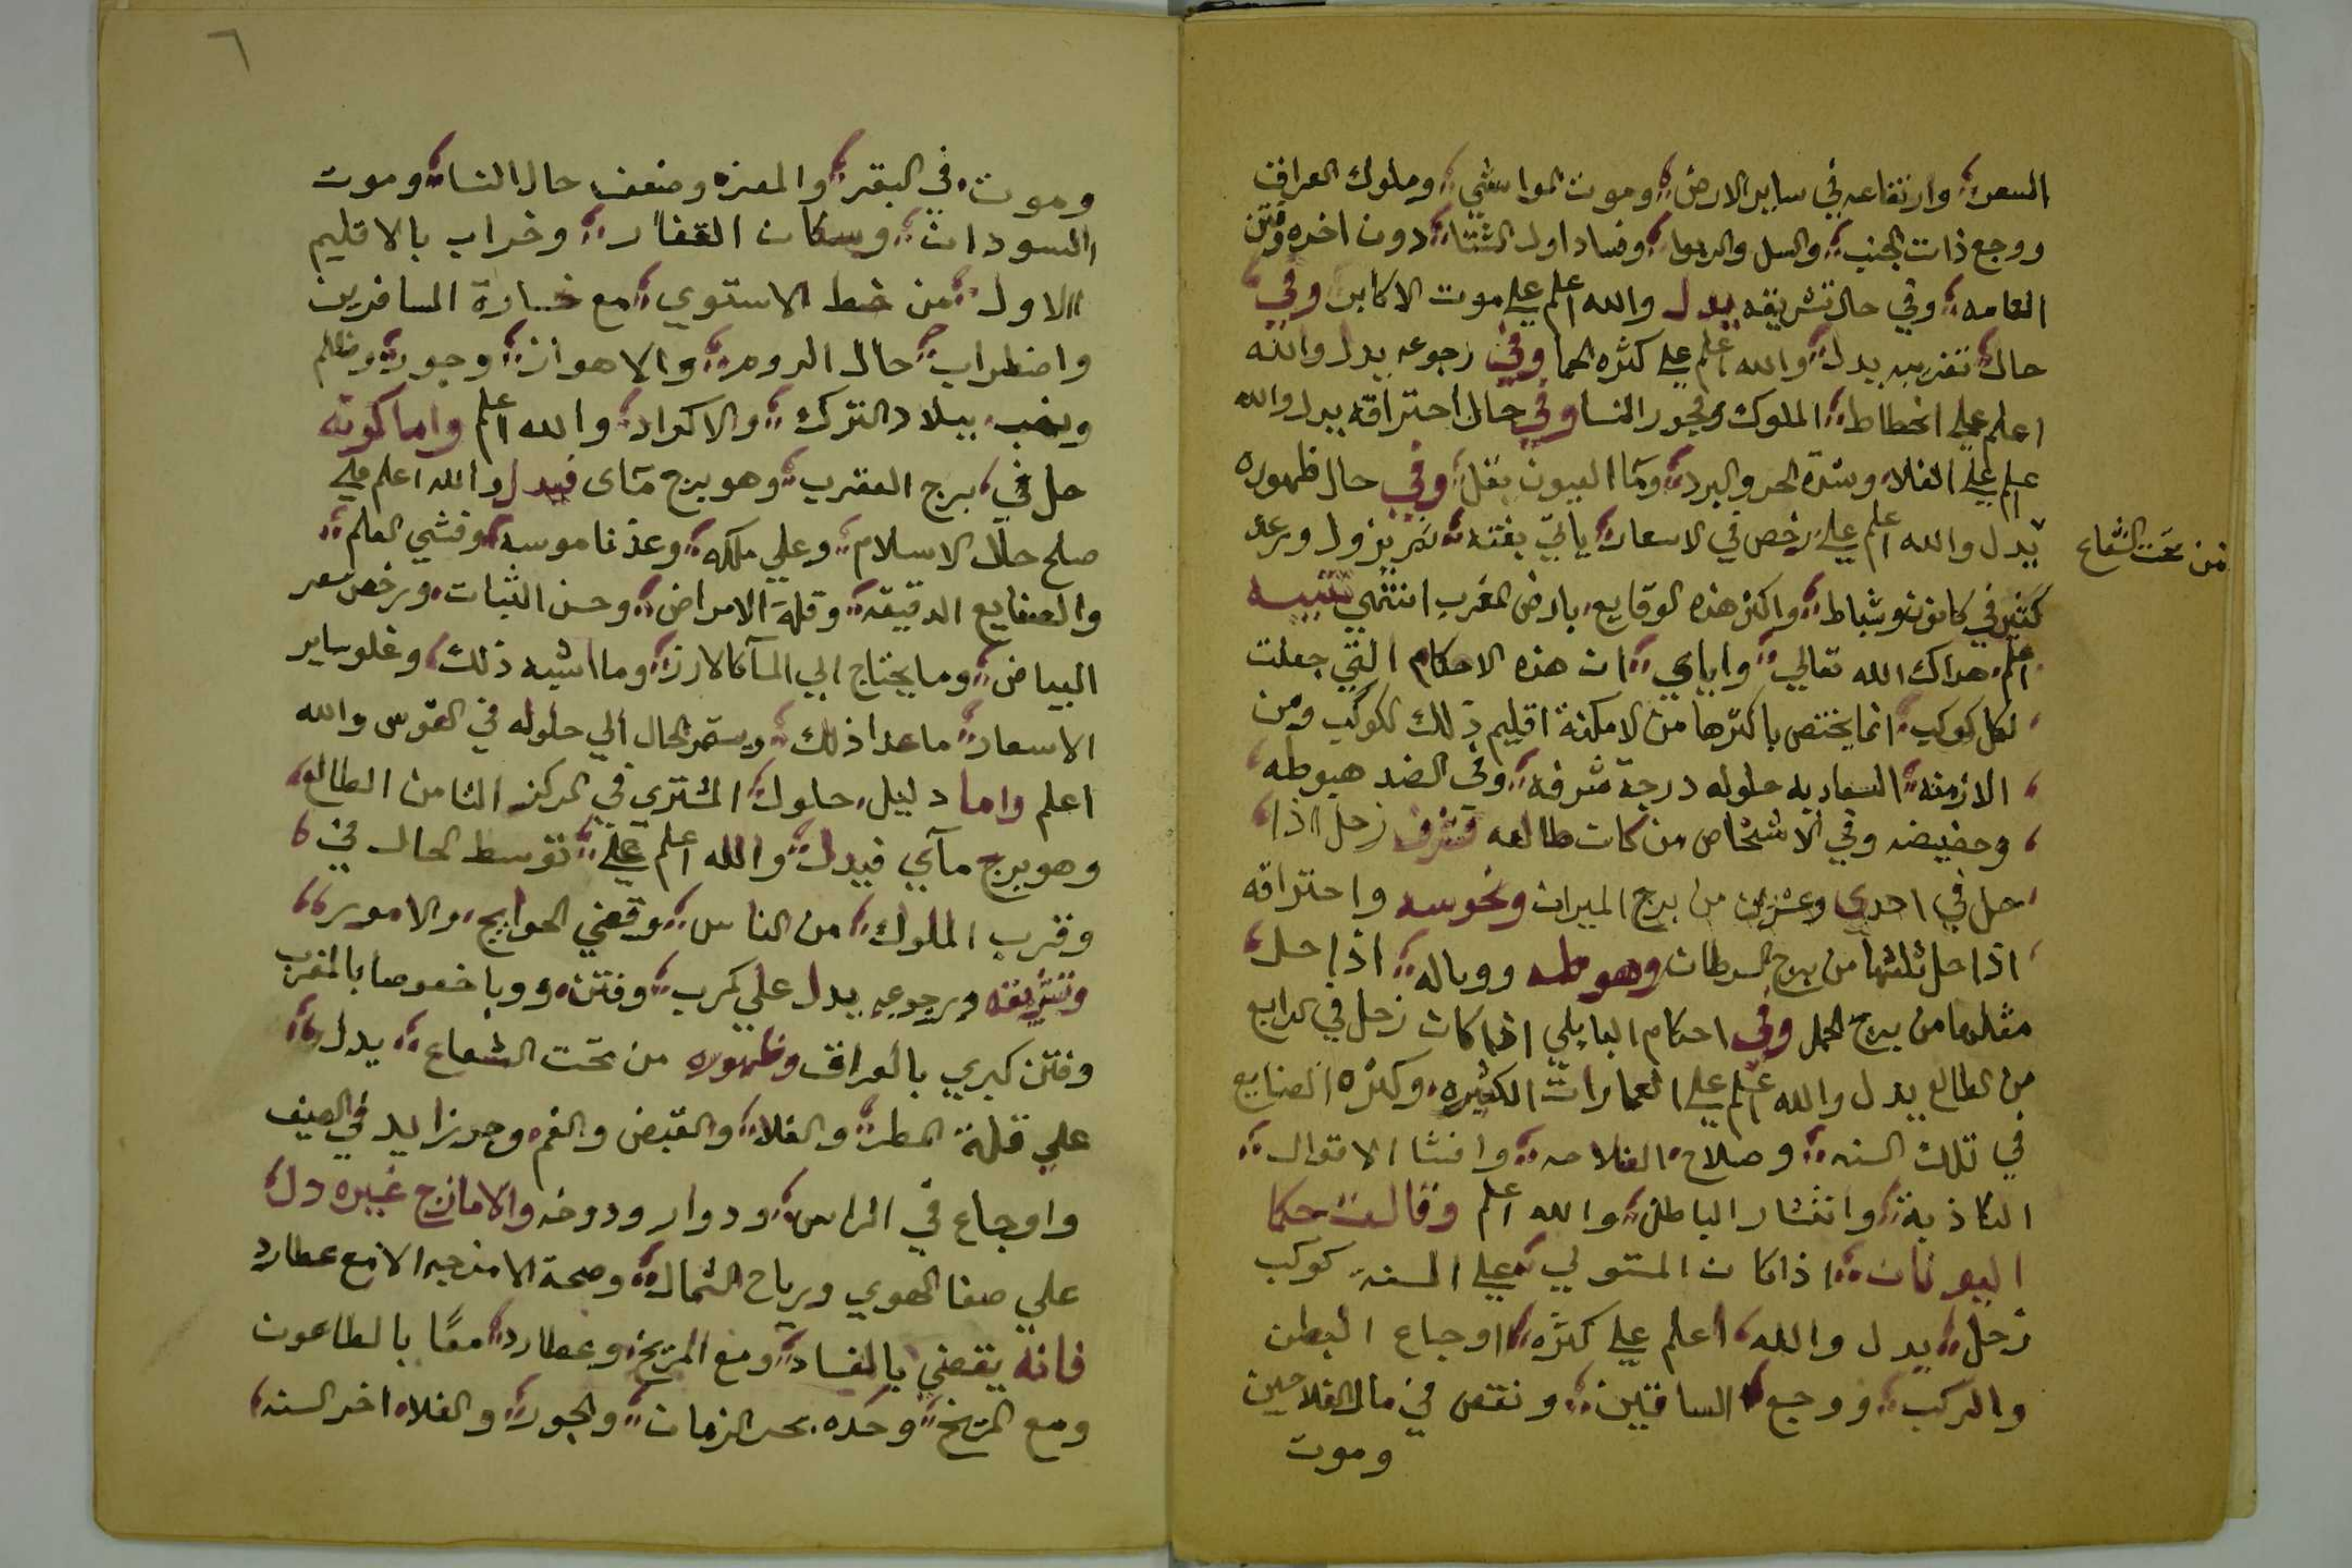 السعر وارتفاعه في ساير الارض وموت المواشي وملوك العراق
ووجع ذات الجنب والسل والربو وفساد اول الشتا دون اخره وفتن
العامه وفي حال تشريقه يدل والله اعلم علي موت الاكابر وفي
حال تغريبه يدل والله اعلم علي كثره الحما وفي رجوعه يدل والله
اعلم علي انحطاط الملوك وفجور النسا وفي حال احتراقه يدل والله
اعلم علي الغلا وشدة الحر والبرد وما العيون يقل وفي حال ظهوره
من تحت الشعاع
يدل والله اعلم علي رخص في الاسعار ياتي بغته ثم يزول ورعد
كثير في كانون وشباط واكثر هذه الوقايع بارض المغرب انتهي تنبيه
اعلم هداك الله تعالي واياي ان هذه الاحكام التي جعلت
لكل كوكب انما يختص باكثرها من الامكنة اقليم ذلك الكوكب ومن
الازمنه السعاديه حلوله درجة شرفه وفي الضد هبوطه
وحضيضه وفي الاشخاص من كان طالعه فشرف زحل اذا
حل في احدي وعشرين من برج الميزان ونحوسه واحتراقه
اذا حل ثلثها من برج السرطان وهبوطه ووباله اذا حل
مثلها من برج الحمل وفي احكام البابلي اذا كان زحل في الرابع
من الطالع يدل والله اعلم علي العمارات الكثيره وكثره الصنايع
في تلك السنه وصلاح الفلاحه وافشا الاقوال
الكاذبة وانتشار الباطن والله اعلم وقالت حكما
اليونان اذا كان المستولي علي السنه كوكب
زحل يدل والله اعلم علي كثره اوجاع البطن
والركب ووجع الساقين ونقص في مال الفلاحين
وموت
٦
وموت في البقر والمعز وضعف حال النسا وموت
السودان وسكان القفار وخراب بالاقليم
الاول من خط الاستوي مع خسارة المسافرين
واضطراب حال الروم والاهواز وجور وظلم
ونهب ببلاد الترك والاكراد والله اعلم واما كونه
حل في برج العقرب وهو برج ماى فيدل والله اعلم علي
صلح حال الاسلام وعلي ملكه وعز ناموسه وفشي العلم
والصنايع الدقيقه وقلة الامراض وحسن النبات ورخص سعر
البياض وما يحتاج الي المآ كالارز وما اشبه ذلك وغلو ساير
الاسعار ماعدا ذلك ويستمر الحال الي حلوله في القوس والله
اعلم واما دليل حلول المشتري في المركز الثامن الطالع
وهو برج مآي فيدل والله اعلم علي توسط الحال في
وقرب الملوك من الناس وقضي الحوايج والامور
وتشريقه ورجوعه يدل علي كرب وفتن ووبا خصوصا بالمغرب
وفتن كبري بالعراق وظهوره من تحت الشعاع يدل
علي قلة المطر والغلا والقبض والغم وحر زايد في الصيف
واوجاع في الراس ودوار ودوخه والامازج غيره دل
علي صفا الهوي ورياح الشمال وصحة الامزجه الا مع عطارد
فانه يقضي بالفساد ومع المريخ وعطارد معًا بالطاعون
ومع المريخ وحده بحر الزمان والجور والغلا اخر السنه